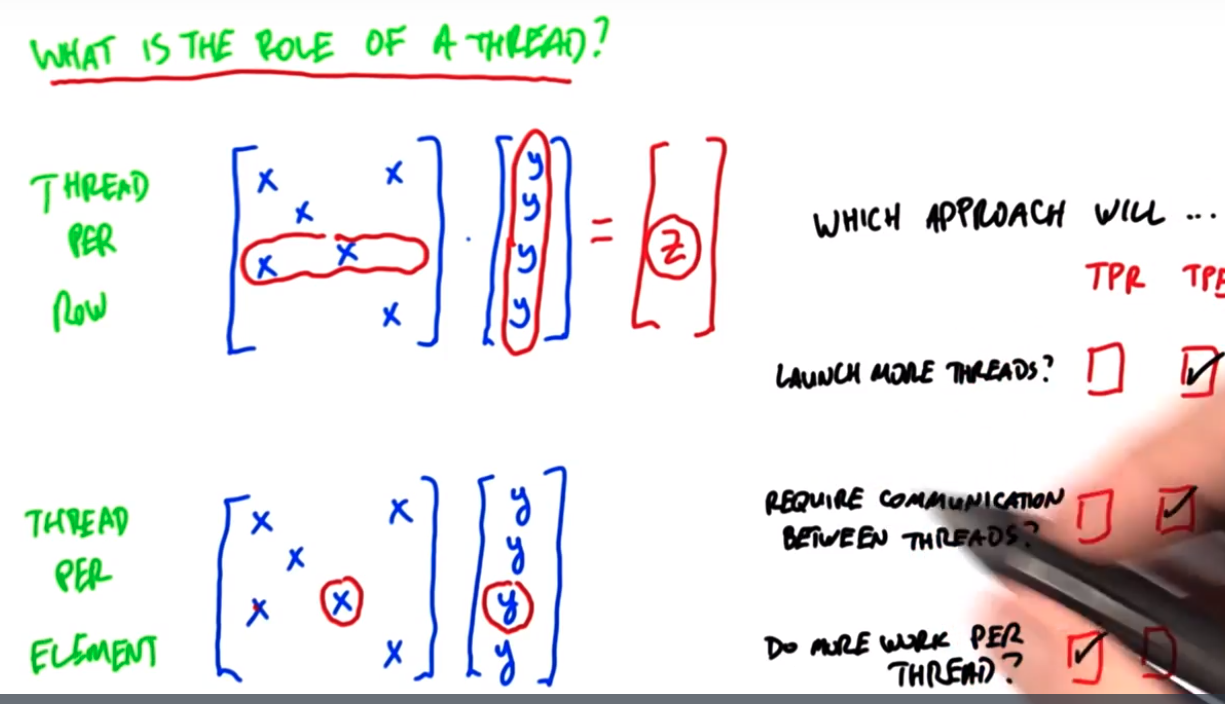 WHAT IS THE ROLE OF A THREAD?
THREAD
PER
ROW
x x
x
x x
x
y
y
y
y
=
z
THREAD
PER
ELEMENT
x x
x
x x
x
y
y
y
y
WHICH APPROACH WILL ...
TPR TPE
LAUNCH MORE THREADS?
REQUIRE COMMUNICATION
BETWEEN THREADS?
DO MORE WORK PER
THREAD?